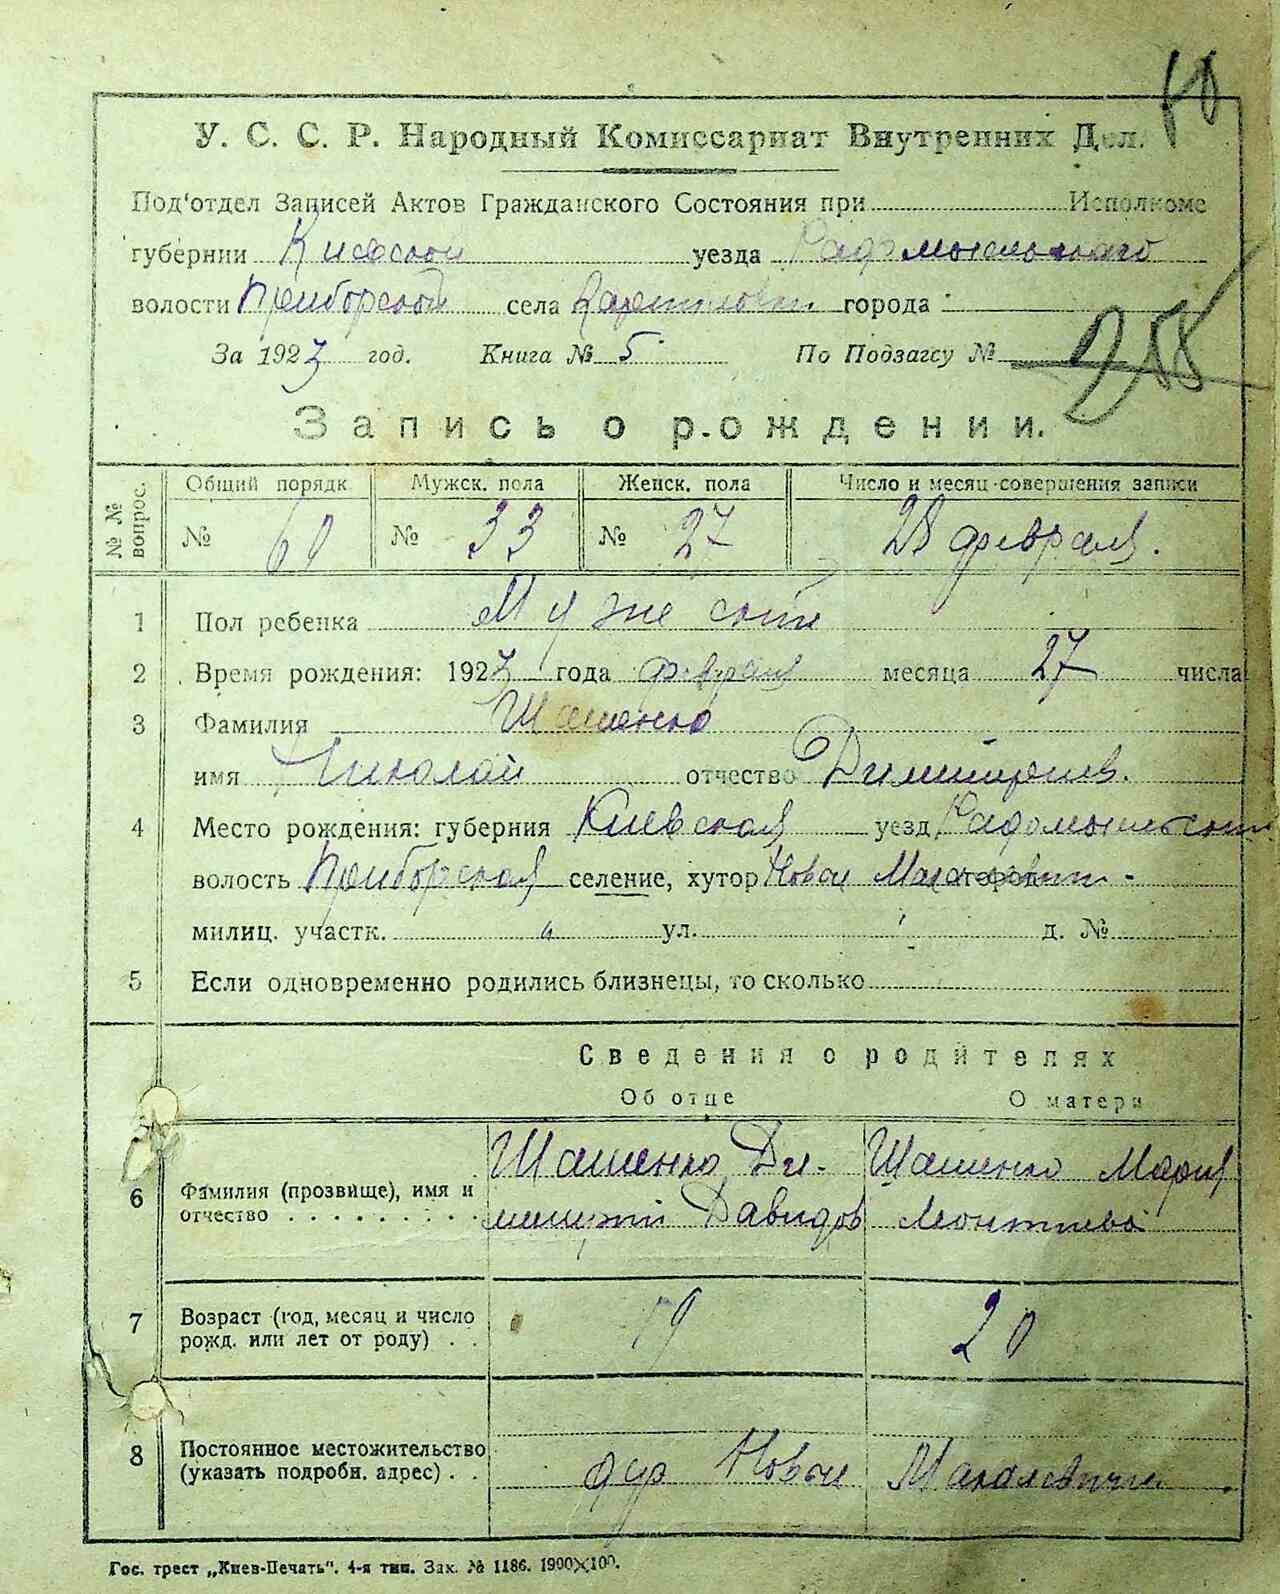 60
У. С. С. Р. Народный Комиссариат Внутренних Дел.
Под'отдел Записей Актов Гражданского Состояния при Исполкоме
губернии Киевской уезда Радомысльского
волости Приборской села города
За 1923 год. Книга № 5 По Подзагсу №
Запись о рождении.
№ № вопрос. Общий порядк Мужск. пола Женск. пола Число и месяц совершения записи
№ 60 № 33 № 27 28 февраля.
1 Пол ребенка Мужеский
2 Время рождения: 1923 года февраля месяца 27 числа
3 Фамилия Шашенко
имя Николай отчество Димитриев.
4 Место рождения: губерния Киевская уезд Радомысльский
волость Приборская селение, хутор Новые Макалевичи
милиц. участк. " ул. д. №
5 Если одновременно родились близнецы, то сколько
Сведения о родителях
Об отце О матери
6 Фамилия (прозвище), имя и отчество Шашенко Ди- Шашенко Мария
митрий Давидов Леонтиева
7 Возраст (год, месяц и число рожд. или лет от роду) 19 20
8 Постоянное местожительство (указать подробн. адрес) дер Новые Макалевичи.
Гос. трест „Киев-Печать". 4-я тип. Зак. № 1186. 1900×100.